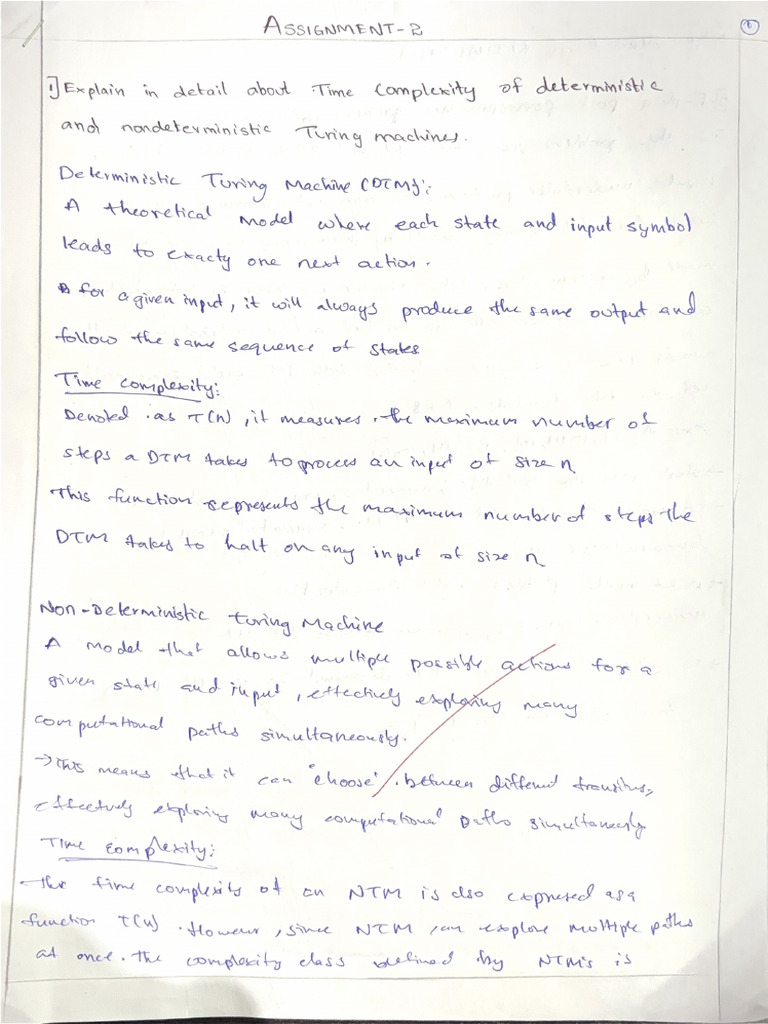 ASSIGNMENT-2
1
1] Explain in detail about Time Complexity of deterministic
and nondeterministic Turing machines.
Deterministic Turing Machine (DTM):
A theoretical model where each state and input symbol
leads to exacty one next action.
for a given input, it will always produce the same output and
follow the same sequence of states
Time complexity:
Denoted as T(n), it measures the maximum number of
steps a DTM takes to process an input of size n
This function represents the maximum number of steps the
DTM takes to halt on any input of size n
Non-Deterministic Turing Machine
A model that allows multiple possible actions for a
given state and input, effectively exploring many
computational paths simultaneously.
→ This means that it can "choose" between different
effectively exploring many computational paths simultaneously
Time complexity:
The time complexity of an NTM is also expressed as a
function T(n). However, since NTM can explore multiple paths
at once. the complexity class defined by NTM's is